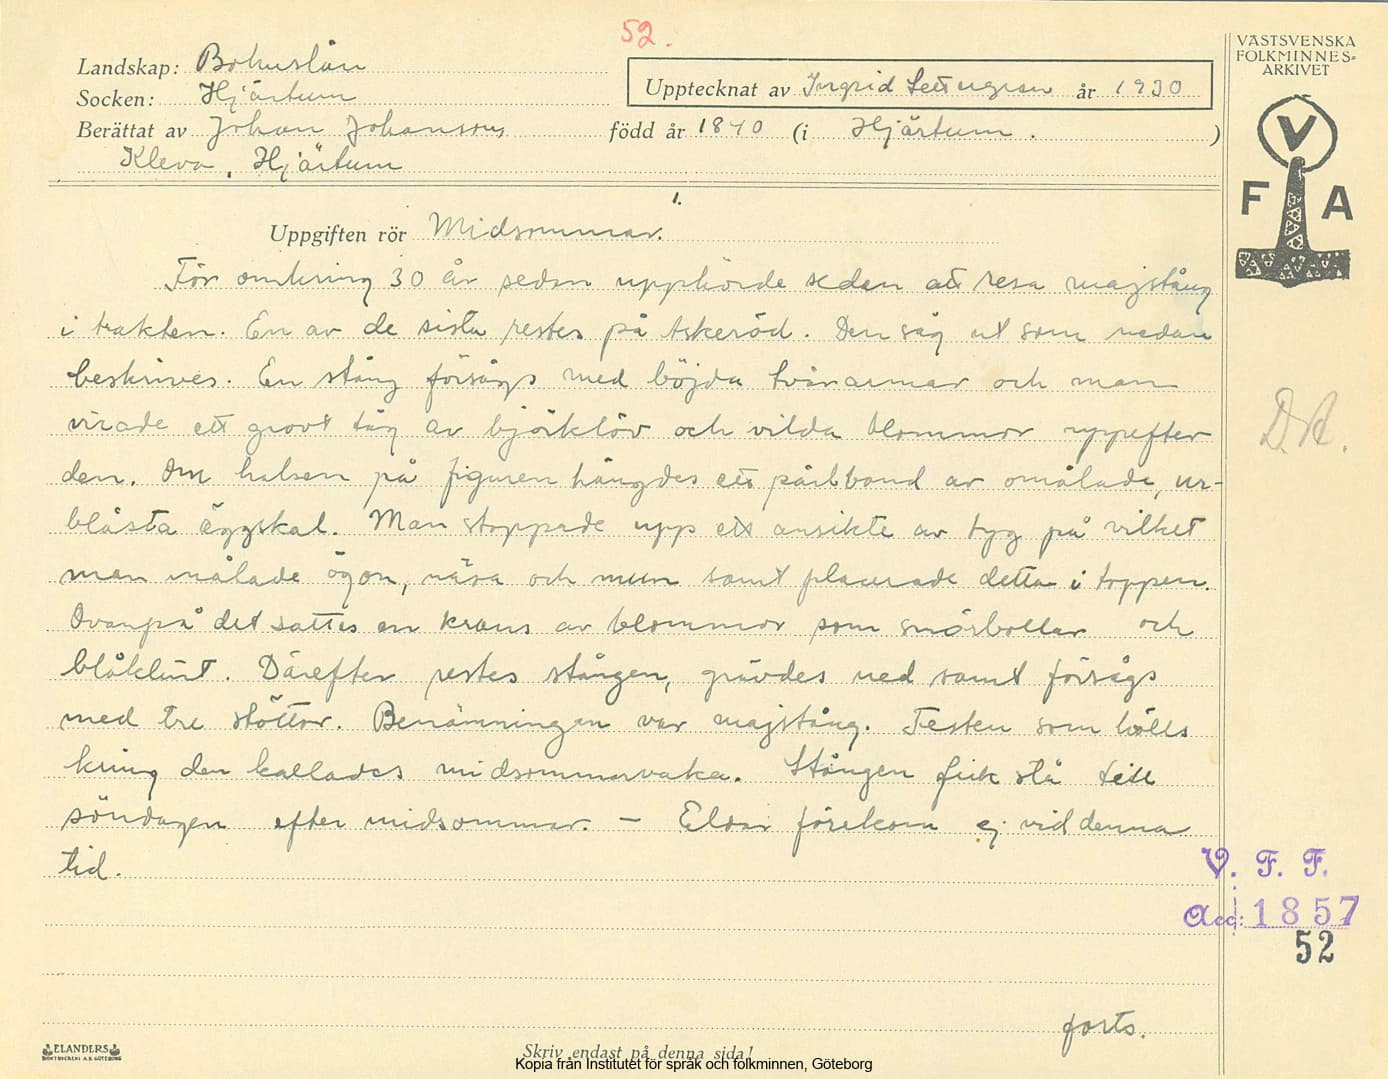 52.
VÄSTSVENSKA
FOLKMINNES-
ARKIVET
Landskap: Bohuslän
Socken: Hjärtum
Upptecknat av Ingrid år 1930
Berättat av Johan Johansson född år 1840 (i Hjärtum. )
Kleva, Hjärtum
V
F A
1.
Uppgiften rör Midsommar.
För omkring 30 år sedan upphörde seden att resa majstång
i trakten. En av de sista restes på Askeröd. Den såg ut som nedan
beskrives. En stång försågs med böjda tvärarmar och man
virade ett grovt tåg av björklöv och vilda blommor uppefter
den. Om halsen på figuren hängdes ett pärlband av omålade, ur-
blåsta äggskal. Man stoppade upp ett ansikte av tyg på vilket
man målade ögon, näsa och mun samt placerade detta i toppen.
Ovanpå det sattes en krans av blommor som snörbollar och
blåklint. Därefter restes stången, grävdes ned samt försågs
med tre stöttor. Benämningen var majstång. Festen som hölls
kring den kallades midsommarvaka. Stången fick stå till
söndagen efter midsommar. – Eldar förekom ej vid denna
tid.
D.A.
V. F. F.
Acc: 1857
52
forts.
ELANDERS
BOKTRYCKERI A.B. GÖTEBORG
Skriv endast på denna sida!
Kopia från Institutet för språk och folkminnen, Göteborg